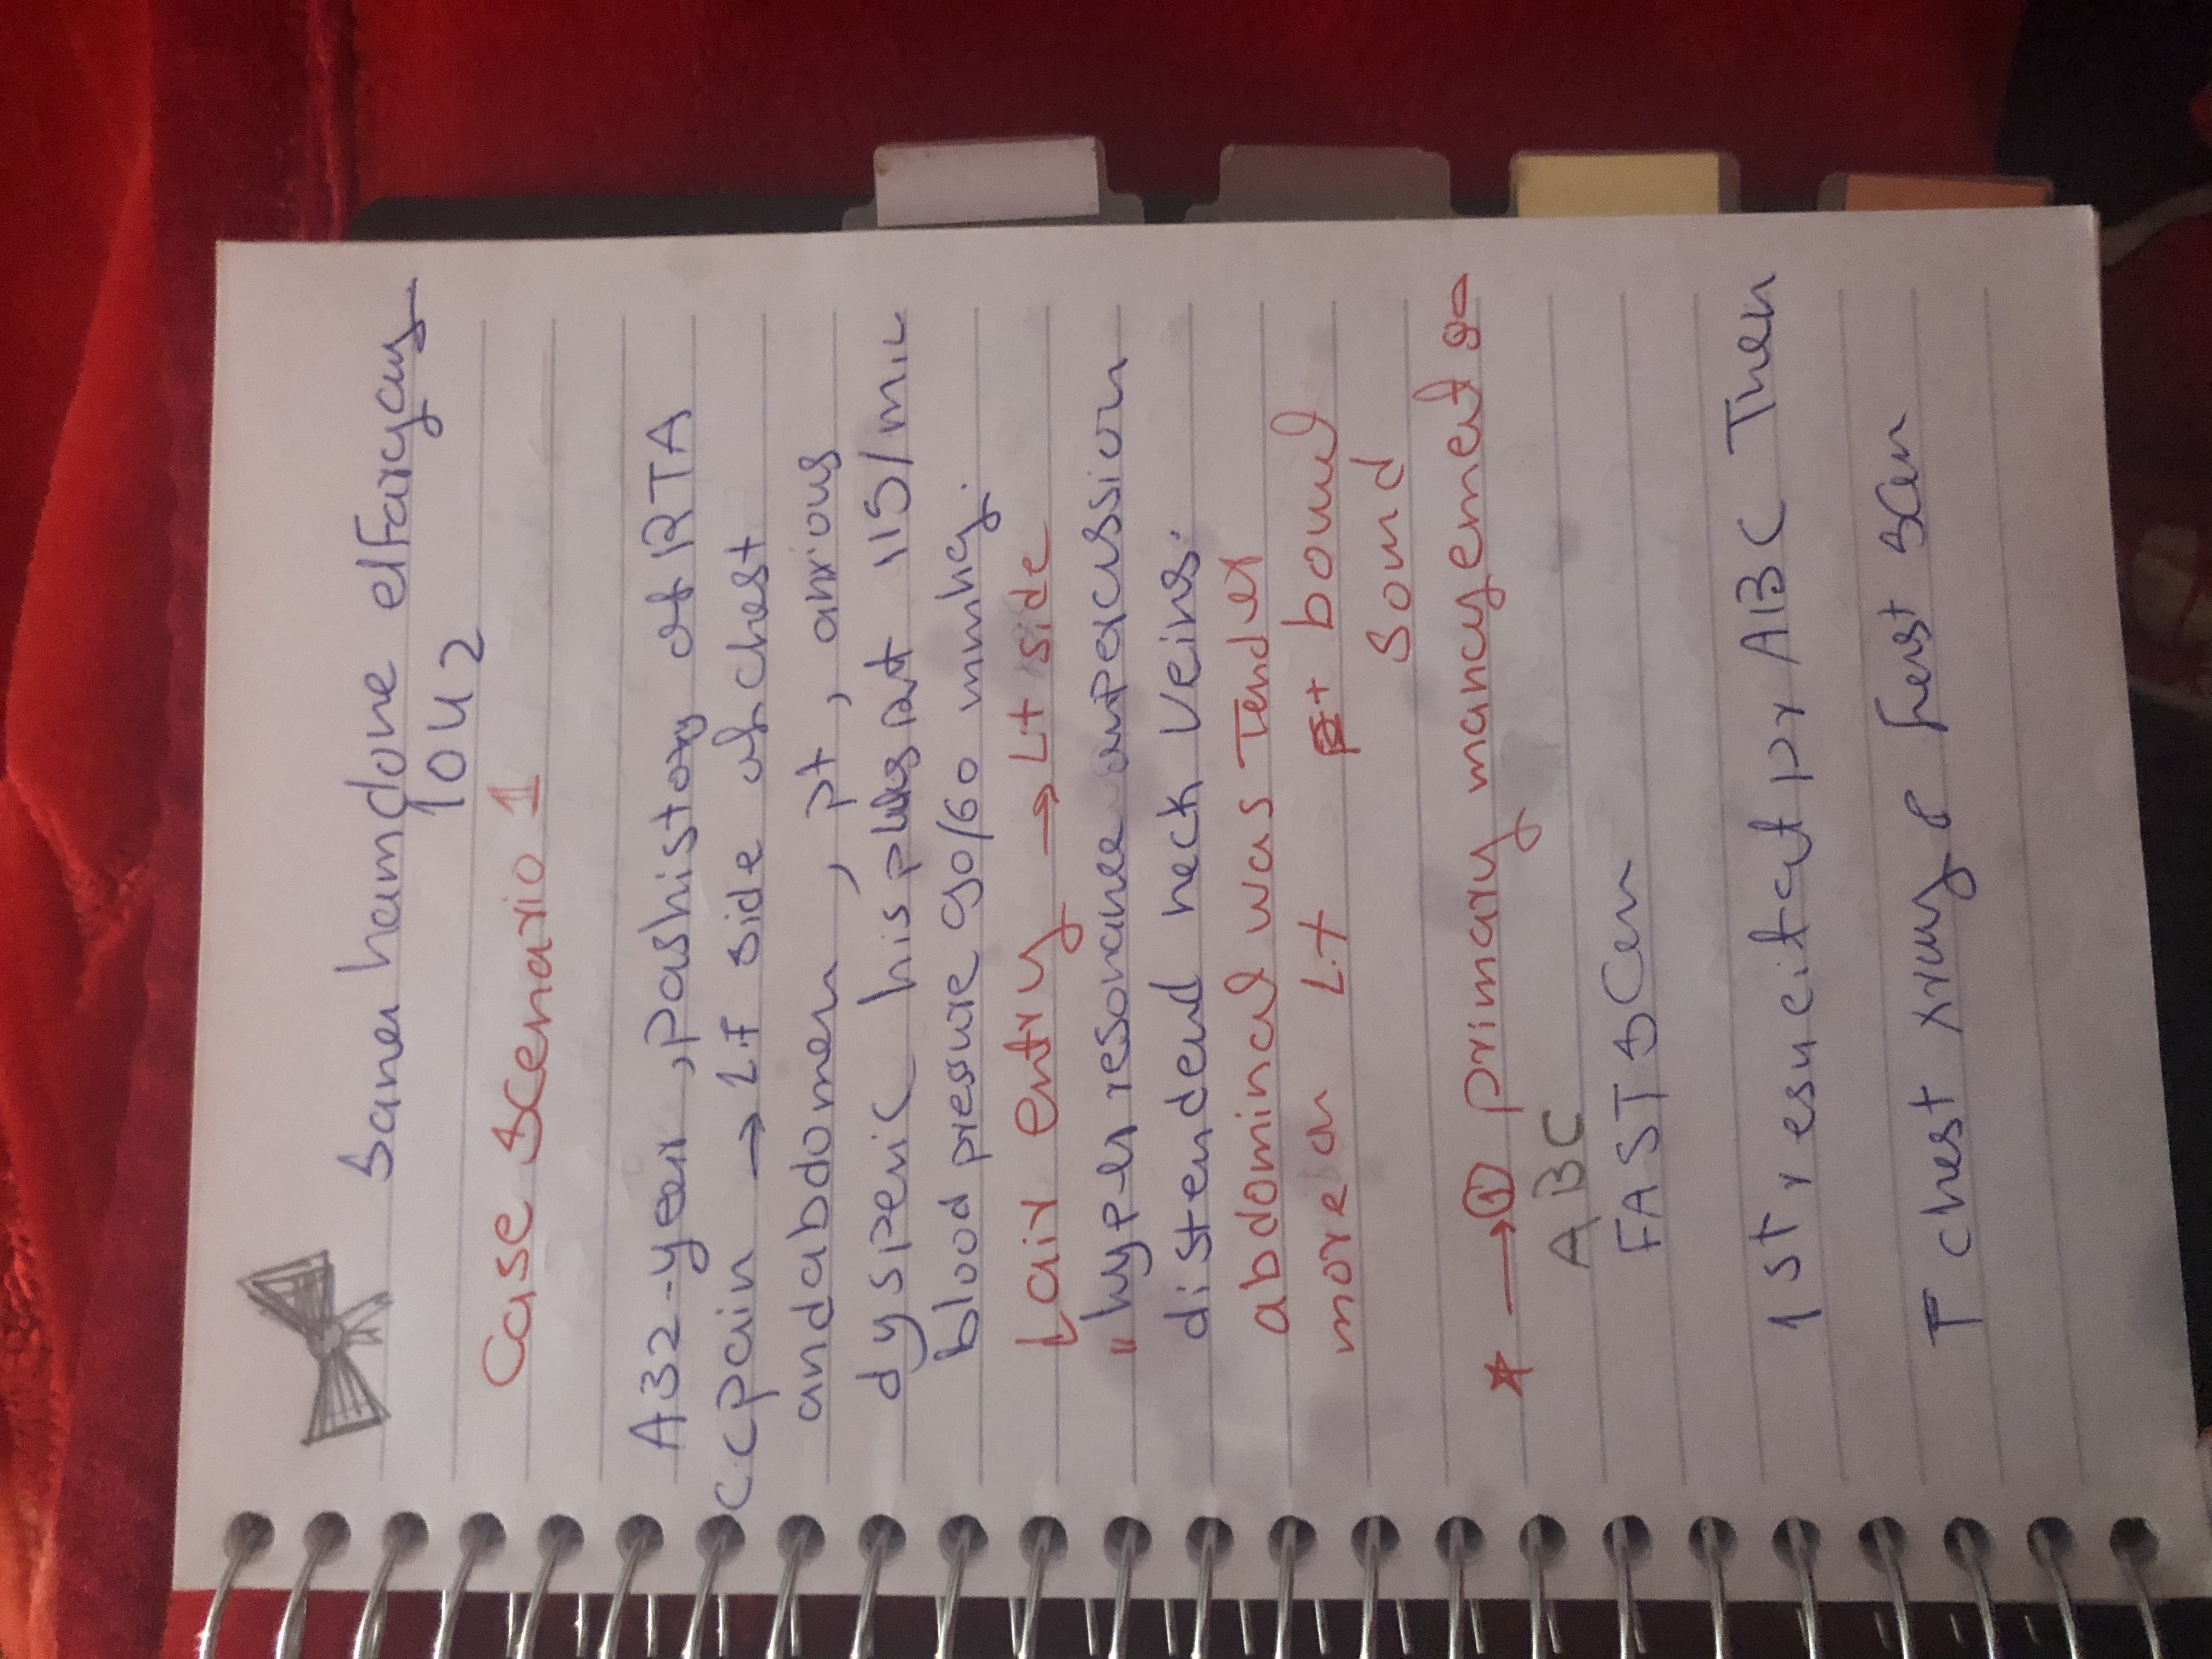 Samer hamdone elfargany
1042
Case Scenario 1
A32-year, pashistory of RTA
C.Cpain → LT side of chest
andabdomen, pt, anxious
dyspenic his pluse rat 115/min
blood presure 90/60 mmhg.
↓air entry → Lt side
"hyper resonance on percussion
distendend neck veins.
abdominal was Tender
more on Lt + bowel
Sound
* → ① primary management :-
ABC
FAST SCan
1st resucitat pr ABC Then
chest xray & fast scan